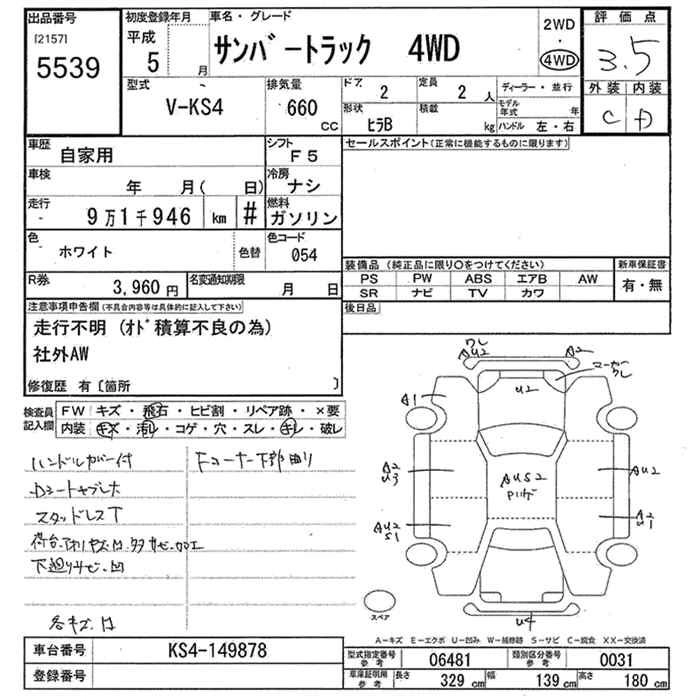 出品番号
[2157]
5539
初度登録年月
平成
5
月
車名・グレード
サンバートラック 4WD
2WD
・
4WD
評価点
3.5
外装 内装
C D
型式
V-KS4
排気量
660
CC
ドア 2
定員 2 人
形状 ヒラB
積載 kg
ディーラー・並行
モデル年式 年
ハンドル 左・右
車歴 自家用
シフト F5
車検 年 月( 日)
冷房 ナシ
走行 9万1千946 km #
燃料 ガソリン
色 ホワイト
色替
色コード 054
R券 3,960円
名変通知期限 月 日
セールスポイント(正常に機能するものに限ります)
装備品 (純正品に限り○をつけてください)
新車保証書
PS PW ABS エアB AW
SR ナビ TV カワ
有・無
後日品
注意事項申告欄(不具合内容等は具体的に記入して下さい)
走行不明 (オド積算不良の為)
社外AW
修復歴 有〔箇所 〕
検査員記入欄
FW キズ・飛石・ヒビ割・リペア跡・×要
内装 キズ・汚レ・コゲ・穴・スレ・キレ・破レ
ハンドルカバー付
Fコーナー下部曲り
スタッドレスT
下廻りサビ.凹
各キズ.凹
ワレ
AU2
A2
マーカーワレ
U2
A1
A2
U3
AU2
AUS2
AU2
S1
A2
U1
U4
スペア
A−キズ E−エクボ U−凹み W−補修跡 S−サビ C−腐食 XX−交換済
車台番号 KS4-149878
登録番号
型式指定番号 参考 06481
類別区分番号 参考 0031
車庫証明用 参考 長さ 329 cm 幅 139 cm 高さ 180 cm